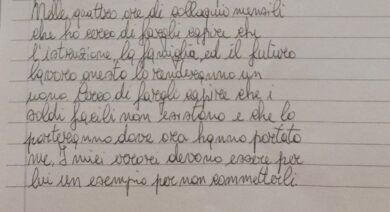 Nelle quattro ore di colloquio mensili
che ho cerco di fargli capire che
l'istruzione, la famiglia, ed il futuro
lavoro onesto lo renderanno un
uomo. Cerco di fargli capire che i
soldi facili non esistono e che lo
porteranno dove ora hanno portato
me. I miei errori devono essere per
lui un esempio per non commetterli.